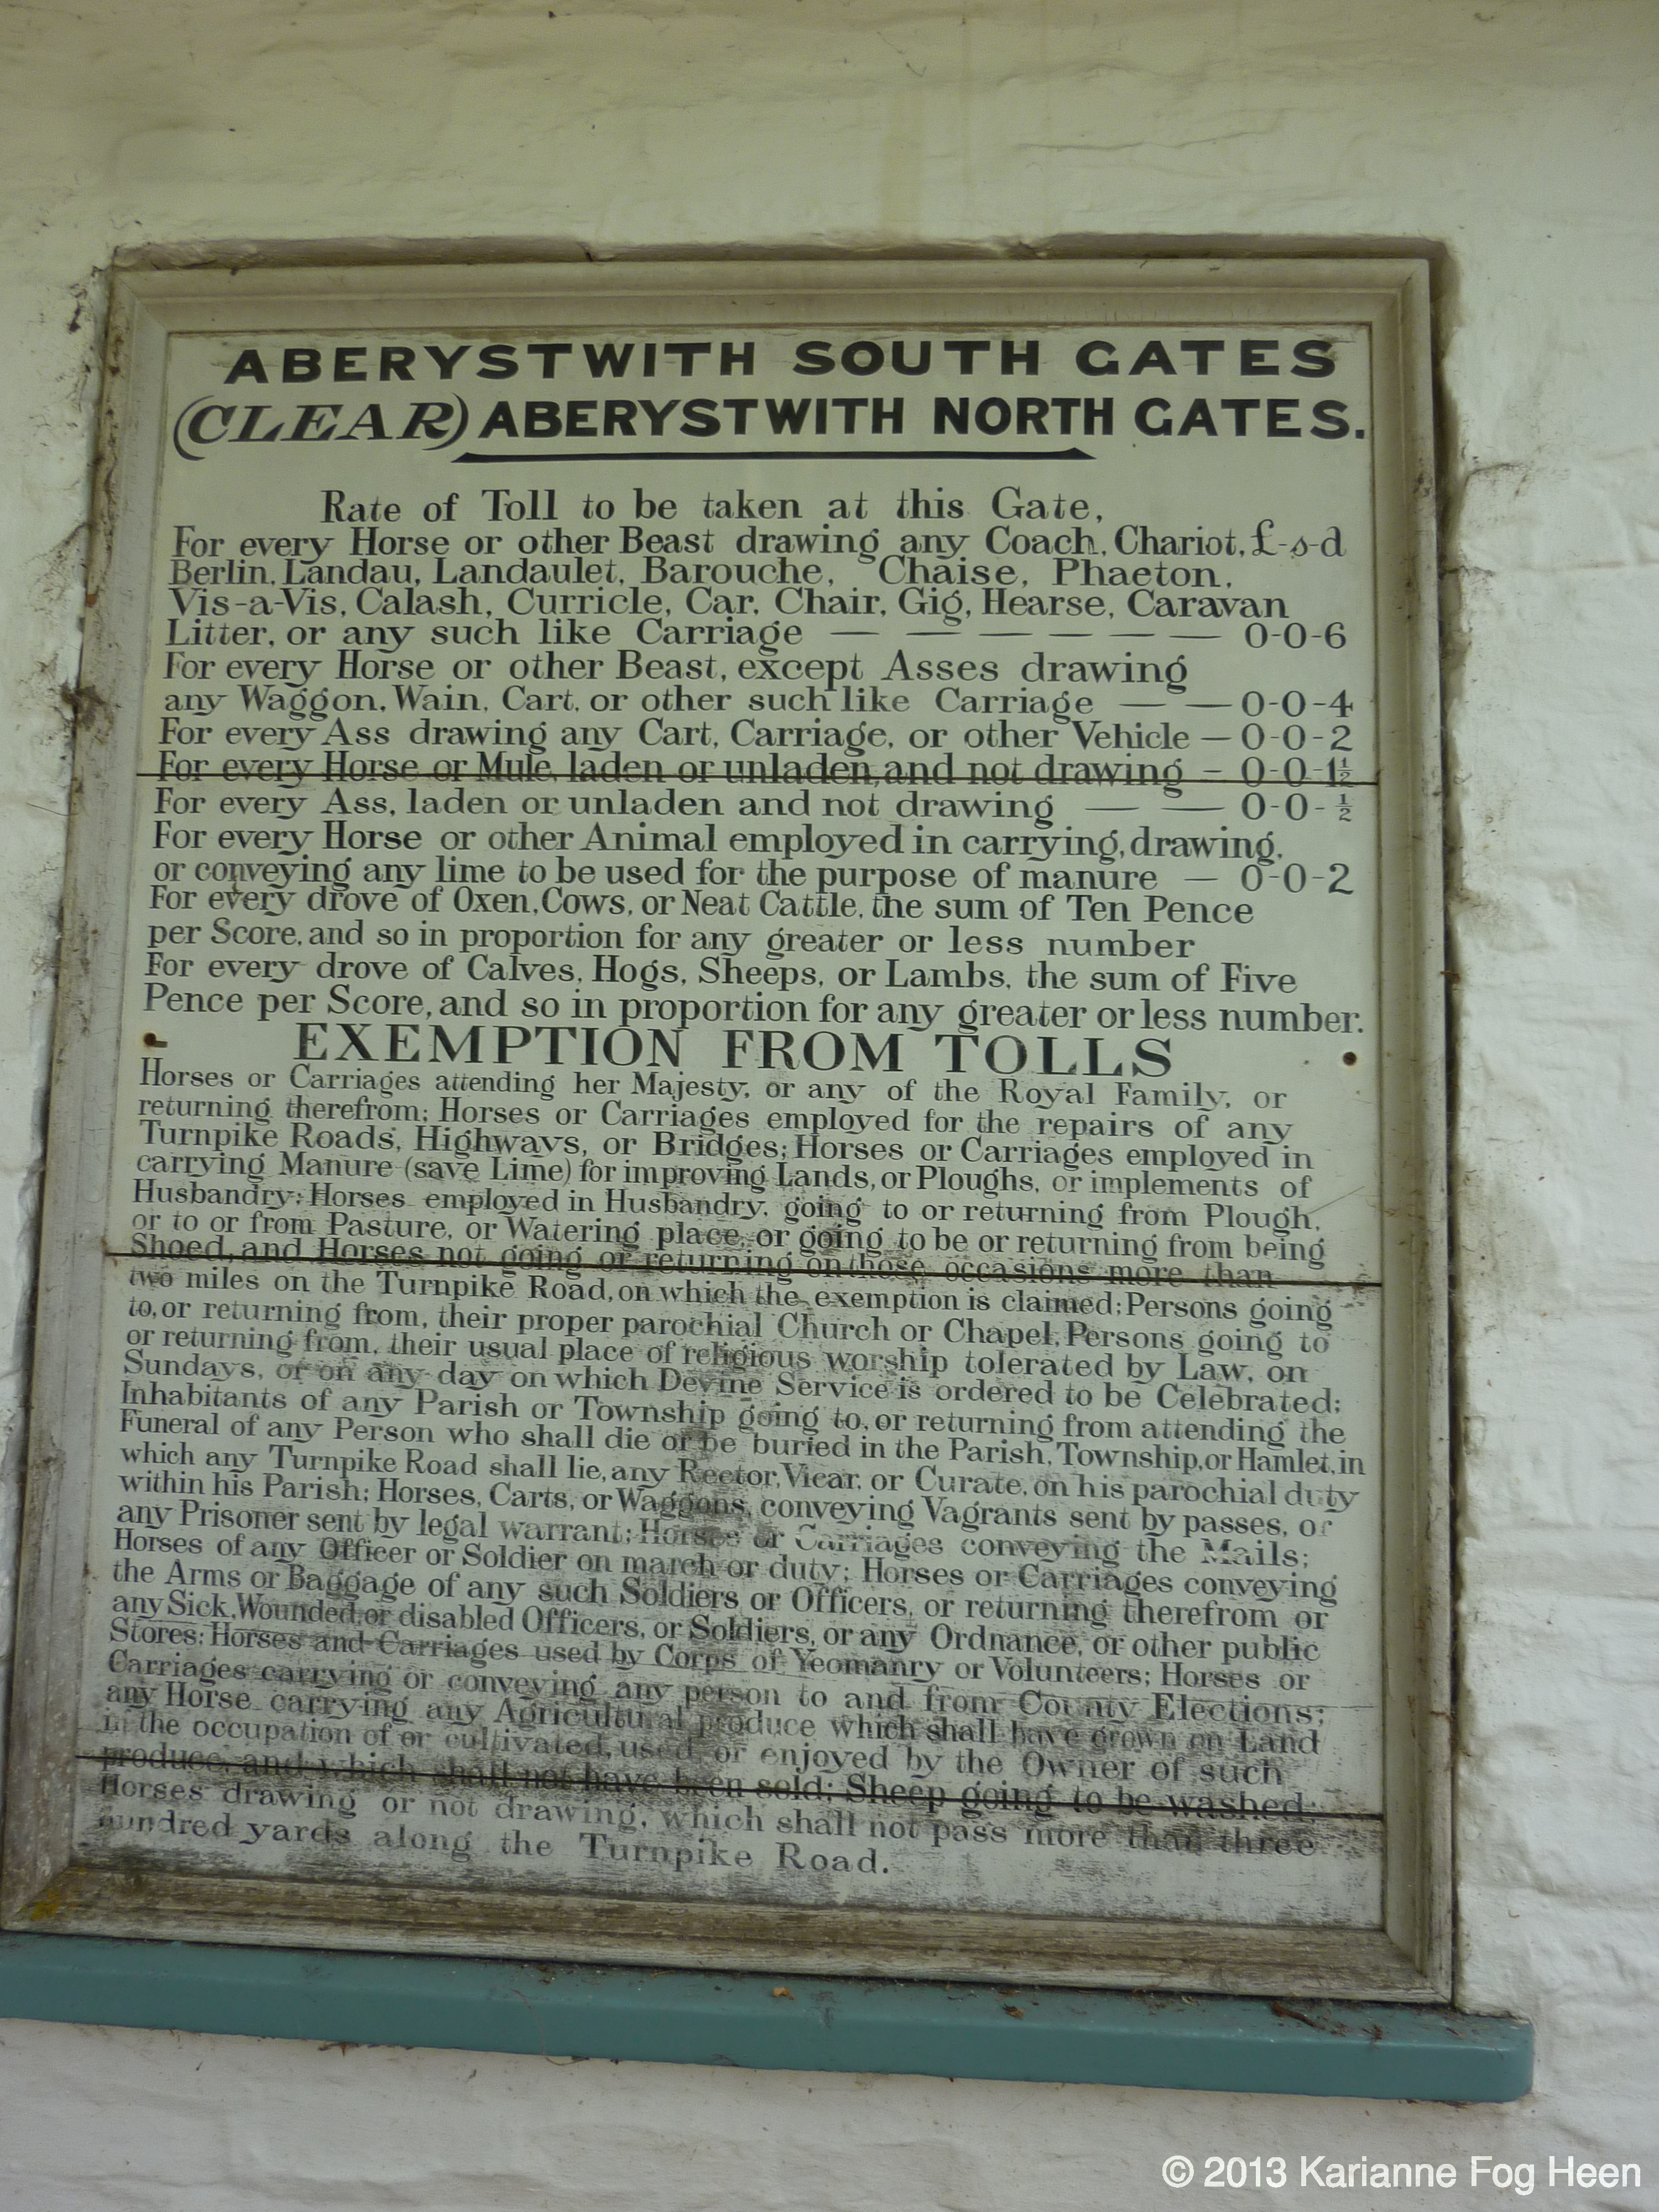 ABERYSTWITH SOUTH GATES
(CLEAR) ABERYSTWITH NORTH GATES.
Rate of Toll to be taken at this Gate,
For every Horse or other Beast drawing any Coach, Chariot, £-s-d
Berlin, Landau, Landaulet, Barouche, Chaise, Phaeton,
Vis-a-Vis, Calash, Curricle, Car, Chair, Gig, Hearse, Caravan
Litter, or any such like Carriage — — — — — — 0-0-6
For every Horse or other Beast, except Asses drawing
any Waggon, Wain, Cart, or other such like Carriage — — 0-0-4
For every Ass drawing any Cart, Carriage, or other Vehicle — 0-0-2
For every Horse or Mule, laden or unladen, and not drawing - 0-0-1½
For every Ass, laden or unladen and not drawing — — 0-0-½
For every Horse or other Animal employed in carrying, drawing,
or conveying any lime to be used for the purpose of manure — 0-0-2
For every drove of Oxen, Cows, or Neat Cattle, the sum of Ten Pence
per Score, and so in proportion for any greater or less number
For every drove of Calves, Hogs, Sheeps, or Lambs, the sum of Five
Pence per Score, and so in proportion for any greater or less number.
EXEMPTION FROM TOLLS
Horses or Carriages attending her Majesty, or any of the Royal Family, or
returning therefrom; Horses or Carriages employed for the repairs of any
Turnpike Roads, Highways, or Bridges; Horses or Carriages employed in
carrying Manure (save Lime) for improving Lands, or Ploughs, or implements of
Husbandry; Horses employed in Husbandry, going to or returning from Plough,
or to or from Pasture, or Watering place, or going to be or returning from being
Shoed, and Horses not going or returning on those occasions more than
two miles on the Turnpike Road, on which the exemption is claimed; Persons going
to, or returning from, their proper parochial Church or Chapel, Persons going to
or returning from, their usual place of religious worship tolerated by Law, on
Sundays, or on any day on which Devine Service is ordered to be Celebrated;
Inhabitants of any Parish or Township going to, or returning from attending the
Funeral of any Person who shall die or be buried in the Parish, Township, or Hamlet, in
which any Turnpike Road shall lie, any Rector, Vicar, or Curate, on his parochial duty
within his Parish; Horses, Carts, or Waggons, conveying Vagrants sent by passes, or
any Prisoner sent by legal warrant; Horses or Carriages conveying the Mails;
Horses of any Officer or Soldier on march or duty; Horses or Carriages conveying
the Arms or Baggage of any such Soldiers or Officers, or returning therefrom or
any Sick, Wounded, or disabled Officers, or Soldiers, or any Ordnance, or other public
Stores; Horses and Carriages used by Corps of Yeomanry or Volunteers; Horses or
Carriages carrying or conveying any person to and from County Elections;
any Horse carrying any Agricultural produce which shall have grown on Land
in the occupation of or cultivated, used, or enjoyed by the Owner of such
produce, and which shall not have been sold; Sheep going to be washed;
Horses drawing or not drawing, which shall not pass more than three
hundred yards along the Turnpike Road.
© 2013 Karianne Fog Heen